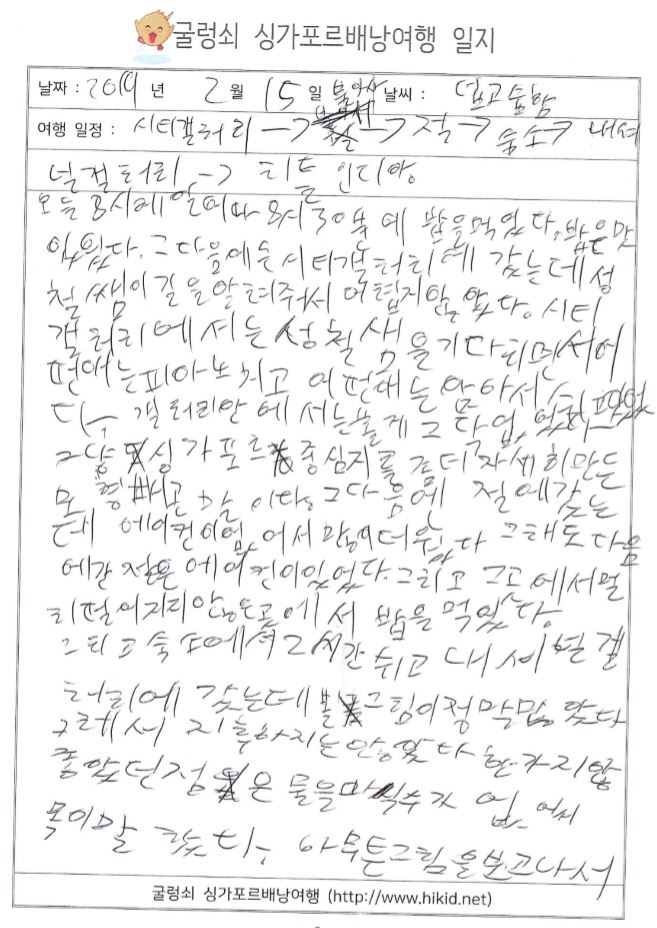 굴렁쇠 싱가포르배낭여행 일지
날짜 : 2019 년 2 월 15 일 불아사 날씨 : 덥고 습함
여행 일정 : 시티갤러리 -> -> 절 -> 숙소 -> 내셔
널갤러리 -> 리틀인디아
오늘 8시에 일어나 8시 30분에 밥을 먹었다. 밥은 맛
있었다. 그 다음에는 시티갤러리에 갔는데 성
철쌤이 길을 알려주셔서 어렵지 않았다. 시티
갤러리에서는 성철샘을 기다리면서 어
떤애는 피아노 치고 어떤애는 앉아서
다. 갤러리 안에서는 볼게 그닥 없었고
그냥 싱가포르 중심지를 좀더 자세히 만든
모형빼곤 말이다. 그 다음에 절에 갔는
데 에어컨이 없어서 많이 더웠다 그래도 다음
에간 절은 에어컨이 있었다. 그리고 그곳에서 멀
리 떨어지지 않은 곳에서 밥을 먹었다.
그리고 숙소에서 2시간 쉬고 내셔널갤
러리에 갔는데 그림이 정말 많았다
그래서 지루하지는 않았다 한가지 안
좋았던점은 물을 마실수가 없어서
목이 말랐다. 아무튼 그림을 보고나서
굴렁쇠 싱가포르배낭여행 (http://www.hikid.net)